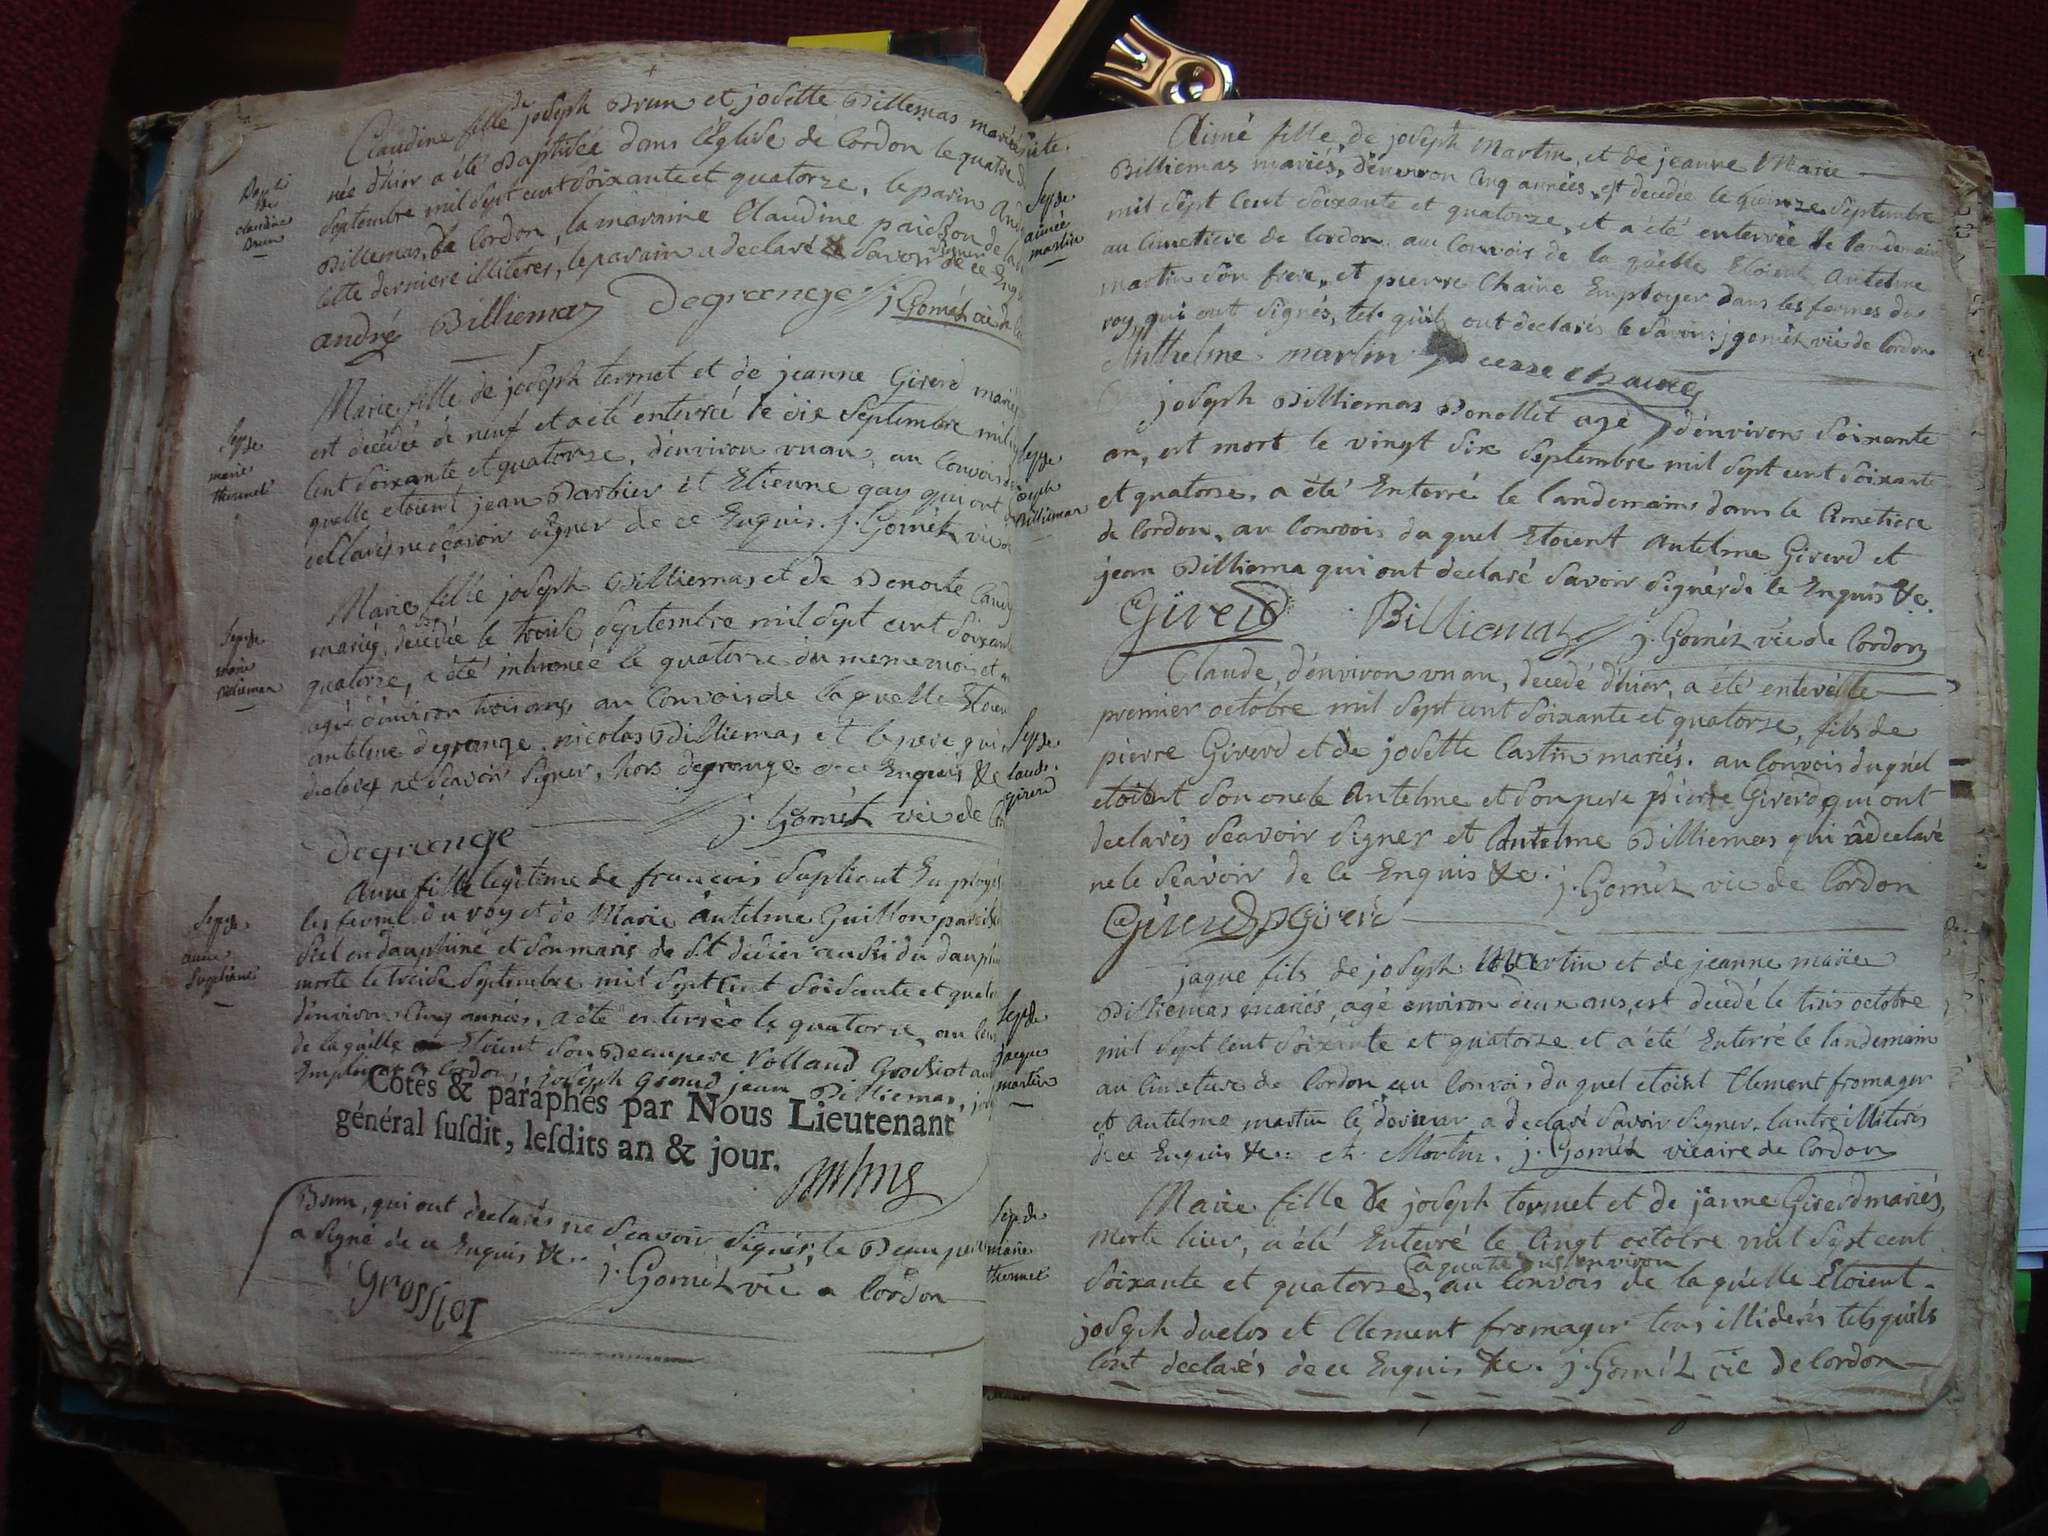 Claudine fille de joseph Brun et josette Billemas mariés
née d'hier a été Baptisée dans l'Eglise de Cordon le quatre
septembre mil sept cent soixante et quatorze, le parin
Billemas, de Cordon, la maraine Claudine paichon de
cette derniere illiterés, le parain a declaré savoir signer de ce Enq
andré Billiemaz Degrange j. Gomét
Bapt.
de
claudine
Brun
Marie fille de joseph termet et de jeanne Girerd mariés
est decédée de neuf et a été enterrée le dix septembre mil
cent soixante et quatorze, d'environ un an, au Convois de
quelle etoient jean Barbier et Etienne gay qui ont
declarés ne sçavoir signer de ce Enquis. j. Gomét vic
sep.re
marie
thermet
Marie fille joseph Billiemas et de Benoite
mariés, decédée le treise septembre mil sept cent soixante
quatorze, a été inhumée le quatorze du meme mois et
agé d'environ trois ans, au Convois de laquelle Etoient
antelme degrange, nicolas Billiemas, et le pere qui
declarés ne sçavoir signer, hors degrange de ce Enquis &c
degrange j. Gomét vic de
sep.re
marie
Billiemas
Anne fille legitime de francois supliant Employé
les fermes du roy et de Marie antelme Guillon
en dauphiné et son maris de St didier aussi du dauphiné
morte le treise septembre mil sept cent soisante et quatorze
d'environ cinq années, a été enterrée le quatorze, au
de laquelle Etoient son Beaupere Rolland Grossiot
Employé a Cordon, joseph Giroud jean Billiemas,
sep.re
anne
suppliant
Cotés & paraphés par Nous Lieutenant
général susdit, lesdits an & jour.
Brun, qui ont declarés ne sçavoir signer, le Beau pere
a signé de ce Enquis &c. j. Gomét vic a Cordon
Grossiot
Aimé fille de joseph Martin, et de jeanne Marie
Billiemas mariés, d'environ cinq années, est decedée le quinze septembre
mil sept cent soixante et quatorze, et a été enterrée le landemain
au Cimetiere de Cordon au Convois de la quelle Etoient Antelme
martin son frere, et pierre Chaine Employer dans les fermes du
roy, qui ont signés, tel qu'ils ont declarés le savoir j gomét vic de Cordon
Anthelme martin pierre chaine
sep.re
aimée
martin
joseph Billiemas Benollit agé d'environ soixante
an, est mort le vingt six septembre mil sept cent soixante
et quatorze, a été Enterré le landemains dans le Cimetiere
de Cordon, au Convois du quel Etoient Antelme Girerd et
jean Billiema qui ont declaré savoir signér de ce Enquis &c.
Girerd Billiemaz j. Gomét vic de Cordon
sep.re
joseph
Billiemas
Claude, d'environ un an, decedé d'hier, a été enterré le
premier octobre mil sept cent soixante et quatorze, fils de
pierre Girerd et de josette Castin mariés. au Convois du quel
etoient son oncle Antelme et son pere pierre Girerd, qui ont
declarés sçavoir signer et Antelme Billiemas qui a declaré
ne le sçavoir de ce Enquis &c. j. Gomét vic de Cordon
Girerd P Girerd
sep.re
claude
girerd
jaque fils de joseph Martin et de jeanne marie
Billiemas mariés, agé environ deux ans, est decedé le trois octobre
mil sept cent soixante et quatorze et a été Enterré le landemain
au Cimetiere de Cordon, au Convois du quel etoient Clement fromager
et Antelme martin le dernier a declaré savoir signer, lautre illiterés
de ce Enquis &c. a. Martin. j. Gomét vicaire de Cordon
sep.re
jacque
martin
Marie fille de joseph termet et de jeanne Girerd mariés,
morte hier, a été Enterré le vingt octobre mil sept cent
soixante et quatorze, agée quatre ans environ, au Convois de la quelle Etoient
joseph duclos et Clement fromager tous illiderés tels qu'ils
l'ont declarés de ce Enquis &c. j. Gomét vic de Cordon
sep.re
marie
thermet